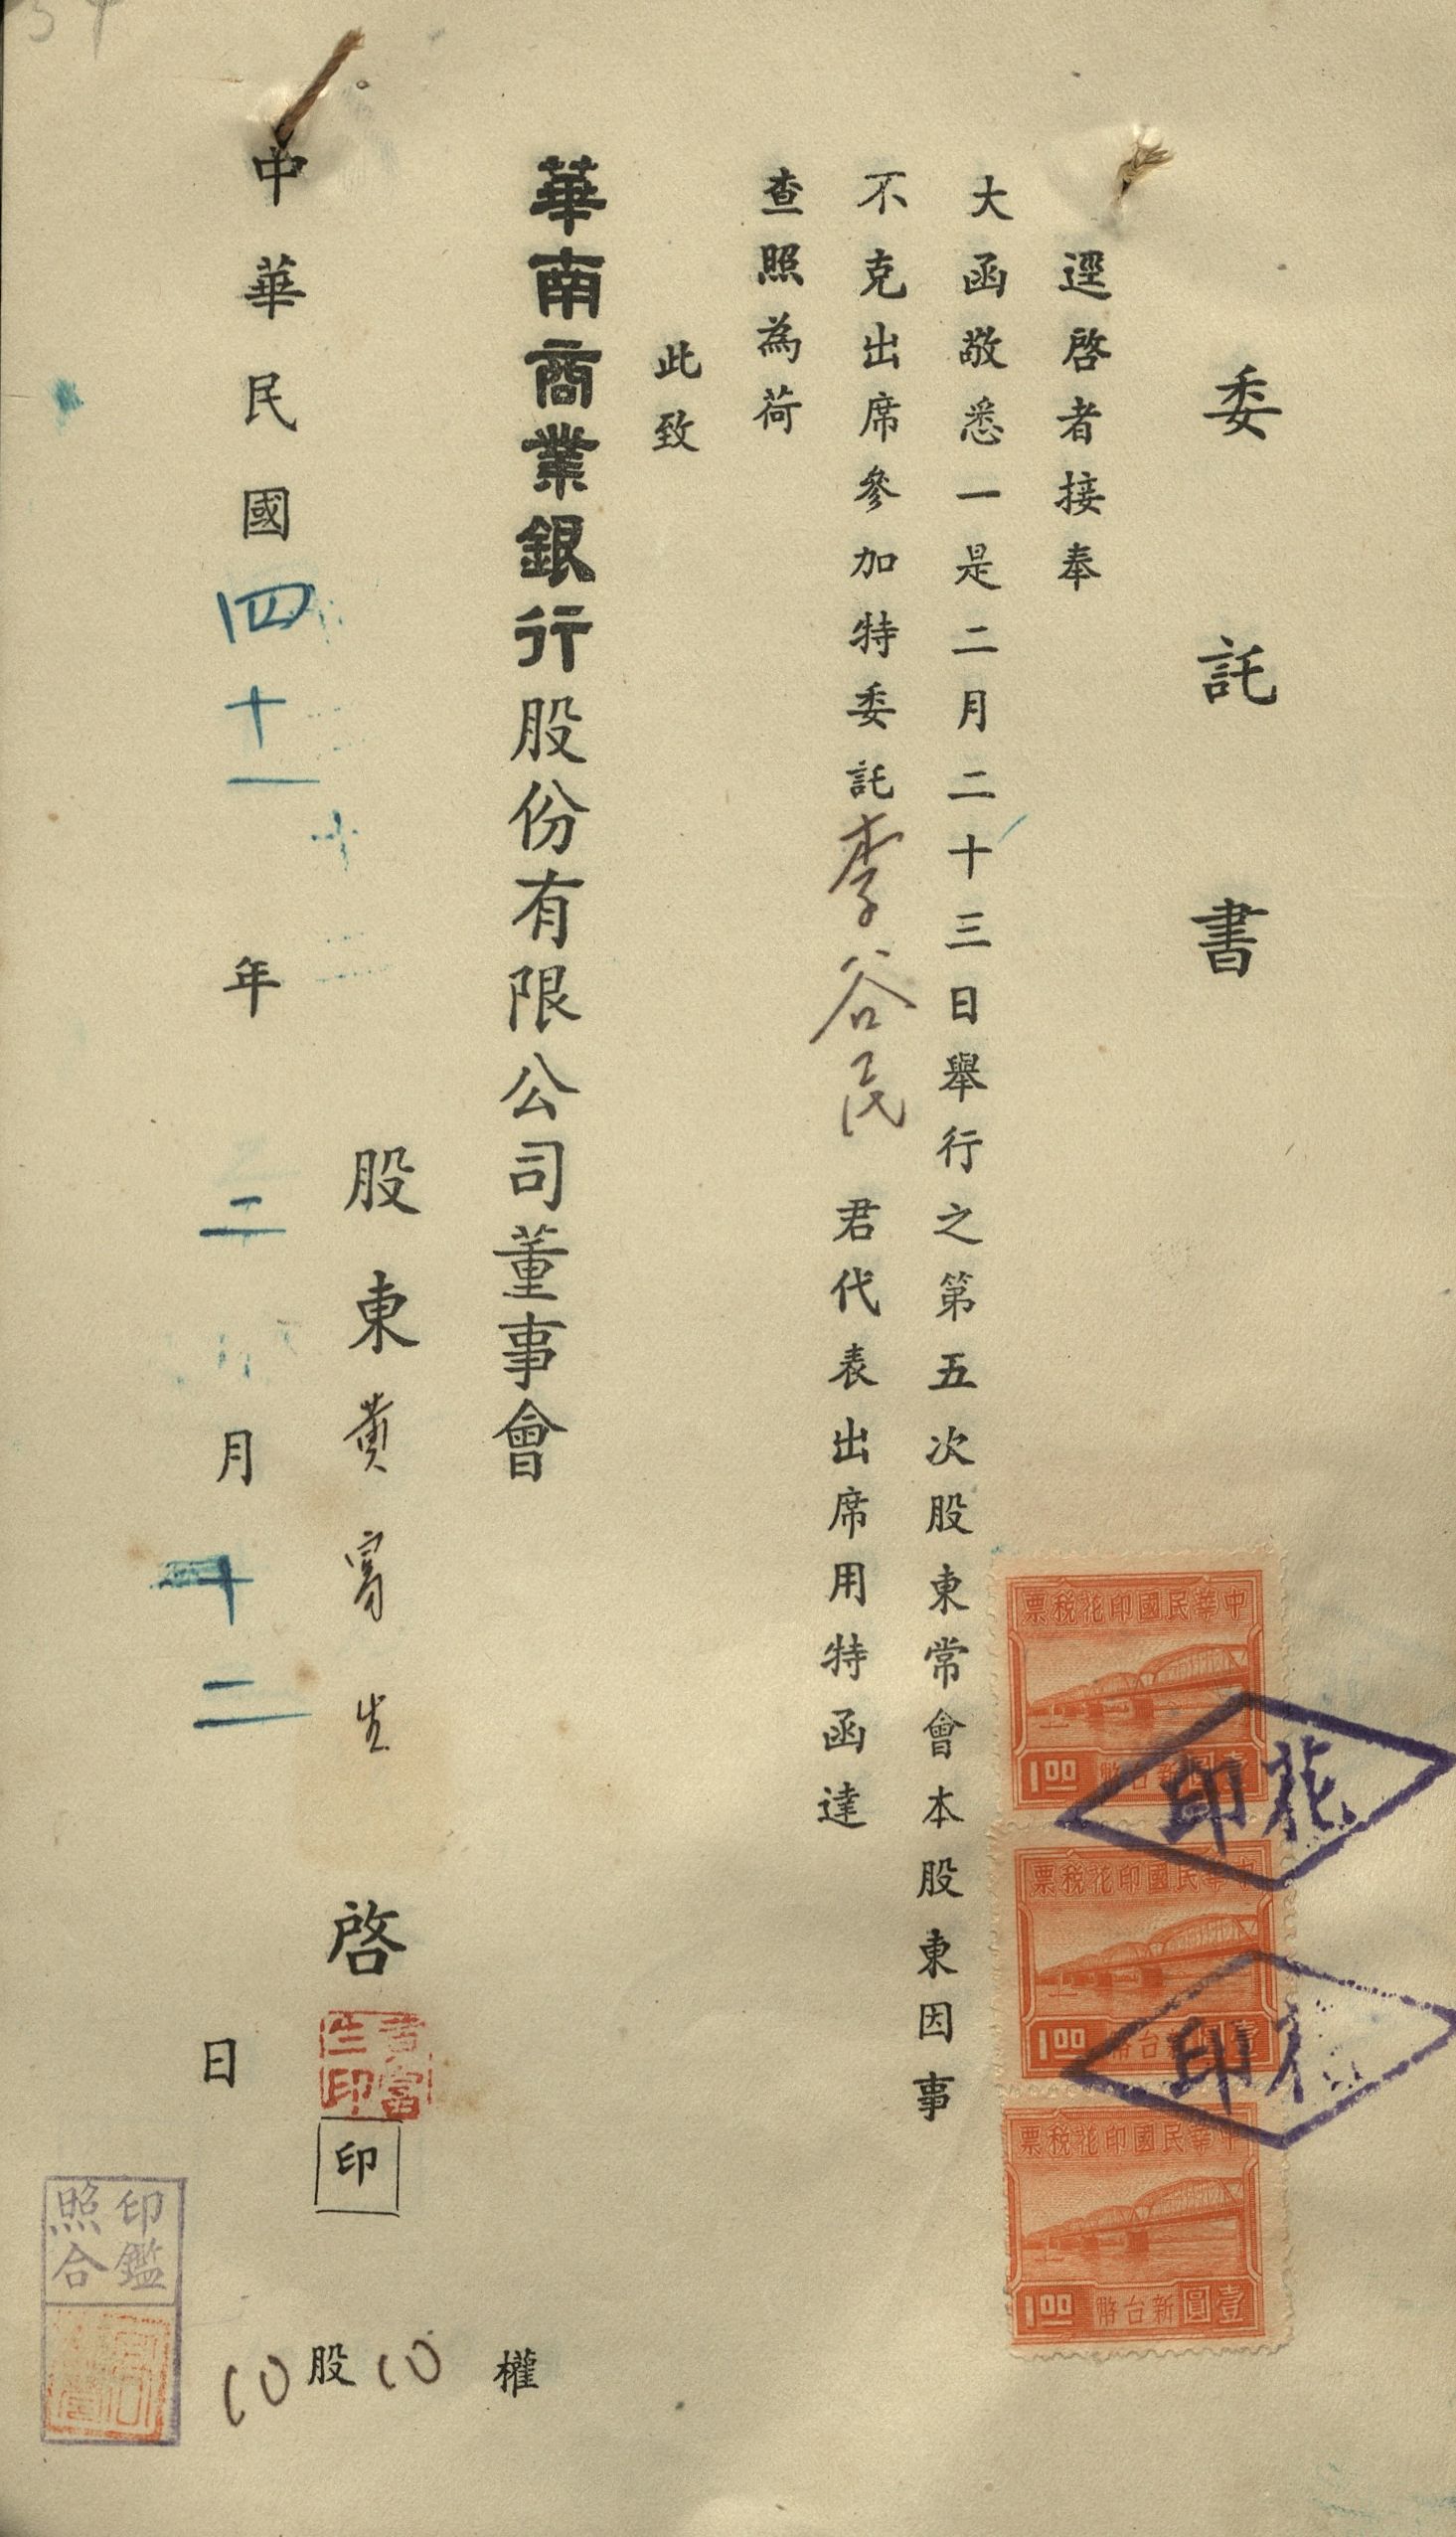 委託書
逕啓者接奉
大函敬悉一是二月二十三日舉行之第五次股東常會本股東因事
不克出席參加特委託李谷民君代表出席用特函達
查照為荷
此致
華南商業銀行股份有限公司董事會
股東黄富生啓
印
中華民國四十一年二月十二日
10股10權
中華民國印花稅票
壹圓新台幣
1.00
中華民國印花稅票
壹圓新台幣
1.00
中華民國印花稅票
壹圓新台幣
1.00
印花
印花
印鑑
照合